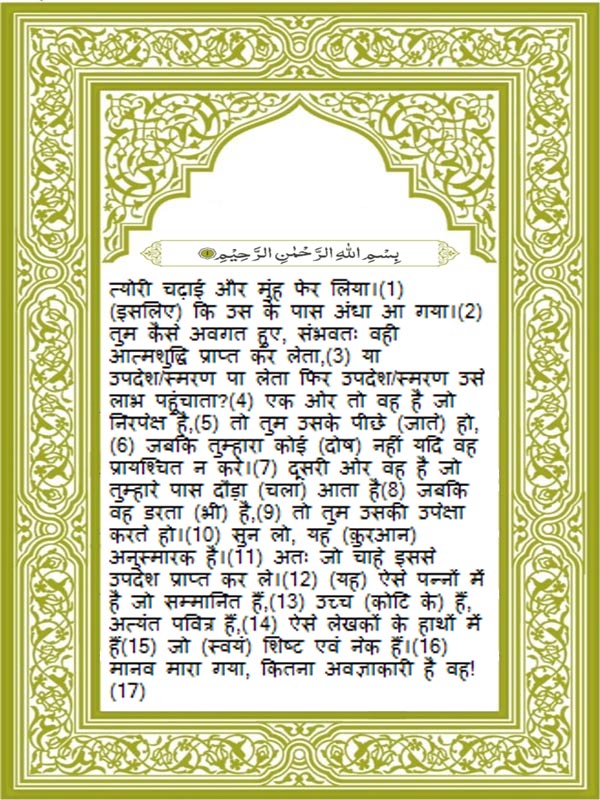 بِسْمِ اللهِ الرَّحْمٰنِ الرَّحِيْمِ
त्योरी चढ़ाई और मुंह फेर लिया।(1)
(इसलिए) कि उस के पास अंधा आ गया।(2)
तुम कैसे अवगत हुए, संभवतः वही
आत्मशुद्धि प्राप्त कर लेता,(3) या
उपदेश/स्मरण पा लेता फिर उपदेश/स्मरण उसे
लाभ पहुंचाता?(4) एक ओर तो वह है जो
निरपेक्ष है,(5) तो तुम उसके पीछे (जाते) हो,
(6) जबकि तुम्हारा कोई (दोष) नहीं यदि वह
प्रायश्चित न करे।(7) दूसरी ओर वह है जो
तुम्हारे पास दौड़ा (चला) आता है(8) जबकि
वह डरता (भी) है,(9) तो तुम उसकी उपेक्षा
करते हो।(10) सुन लो, यह (क़ुरआन)
अनुस्मारक है।(11) अतः जो चाहे इससे
उपदेश प्राप्त कर ले।(12) (यह) ऐसे पन्नों में
है जो सम्मानित हैं,(13) उच्च (कोटि के) हैं,
अत्यंत पवित्र हैं,(14) ऐसे लेखकों के हाथों में
हैं(15) जो (स्वयं) शिष्ट एवं नेक हैं।(16)
मानव मारा गया, कितना अवज्ञाकारी है वह!
(17)